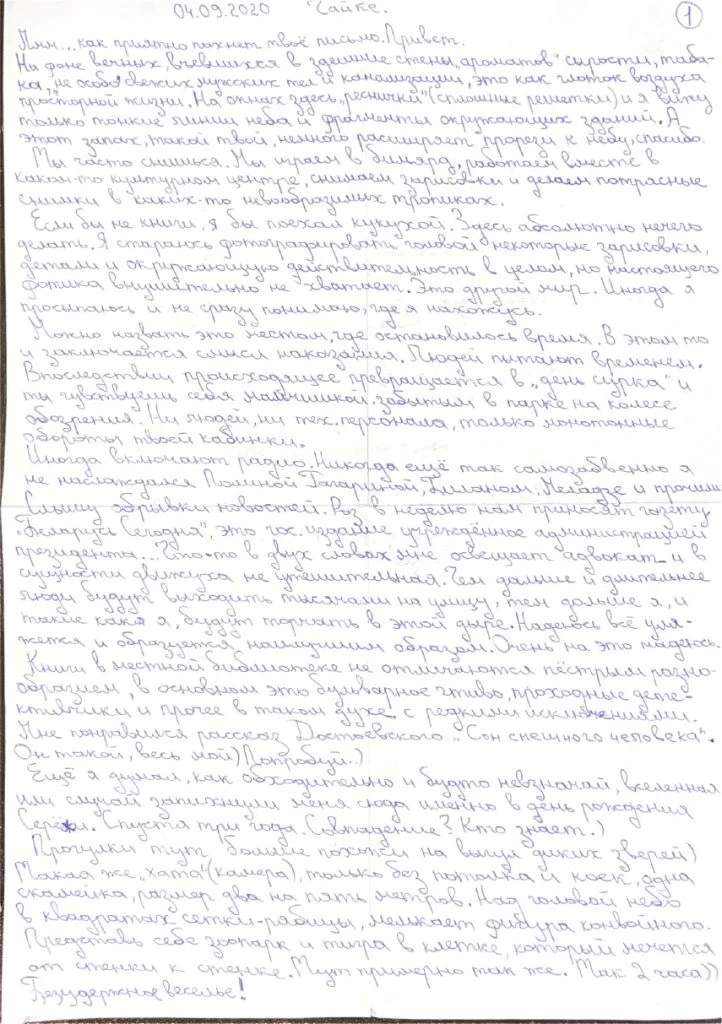 04.09.2020 "Сайке.
1
Ммм... как приятно пахнет твоё письмо. Привет.
На фоне вечных, въевшихся в здешние стены „ароматов" сырости, таба-
ка, „не особо" свежих мужских тел и канализации, это как глоток воздуха
просторной жизни. На окнах здесь „реснички" (сплошные решетки) и я вижу
только тонкие линии неба и фрагменты окружающих зданий. А
этот запах, такой твой, немного расширяет прорези к небу, спасибо.
Мы часто снишься. Мы играем в бильярд, работаем вместе в
каком-то культурном центре, снимаем зарисовки и делаем потрясные
снимки в каких-то невообразимых тропиках.
Если бы не книги, я бы поехал кукухой. Здесь абсолютно нечего
делать. Я стараюсь фотографировать головой некоторые зарисовки,
детали и окружающую действительность в целом, но настоящего
фотика внушительно не хватает. Это другой мир. Иногда я
просыпаюсь и не сразу понимаю, где я нахожусь.
Можно назвать это местом, где остановилось время. В этом то
и заключается смысл наказания. Людей пытают временем.
Впоследствии происходящее превращается в „день сурка" и
ты чувствуешь себя мальчишкой забытым в парке на колесе
обозрения. Ни людей, ни тех. персонала, только монотонные
обороты твоей кабинки.
Иногда включают радио. Никогда ещё так самозабвенно я
не наслаждался Полиной Гагариной, Биланом, Меладзе и прочими
Слышу обрывки новостей. Раз в неделю нам приносят газету
„Беларусь Сегодня", это гос. издание учреждённое администрацией
президента... Что-то в двух словах мне освещает адвокат и в
сущности движуха не утешительная. Чем дальше и длительнее
люди будут выходить тысячами на улицу, тем дольше я, и
такие как я, будут торчать в этой дыре. Надеюсь всё ула-
жется и образуется наилучшим образом. Очень на это надеюсь.
Книги в местной библиотеке не отличаются пёстрым разно-
образием, в основном это бульварное чтиво, проходные дете-
ктивчики и прочее в таком духе с редкими исключениями.
Мне понравился рассказ Достоевского „Сон смешного человека".
Он такой, весь мой) Попробуй..)
Ещё я думал, как обходительно и будто невзначай, вселенная
или случай запихнули меня сюда именно в день рождения
Серёжи. Спустя три года. Совпадение? Кто знает.)
Прогулки тут, больше похожи на выгул диких зверей)
Такая же „хата" (камера), только без потолка и коек, одна
скамейка, размер два на пять метров. Над головой небо
в квадратах сетки-рабицы, мелькает фигура конвойного.
Представь себе зоопарк и тигра в клетке, который мечется
от стенки к стенке. Тут примерно так же. Так 2 часа))
Безудержное веселье!